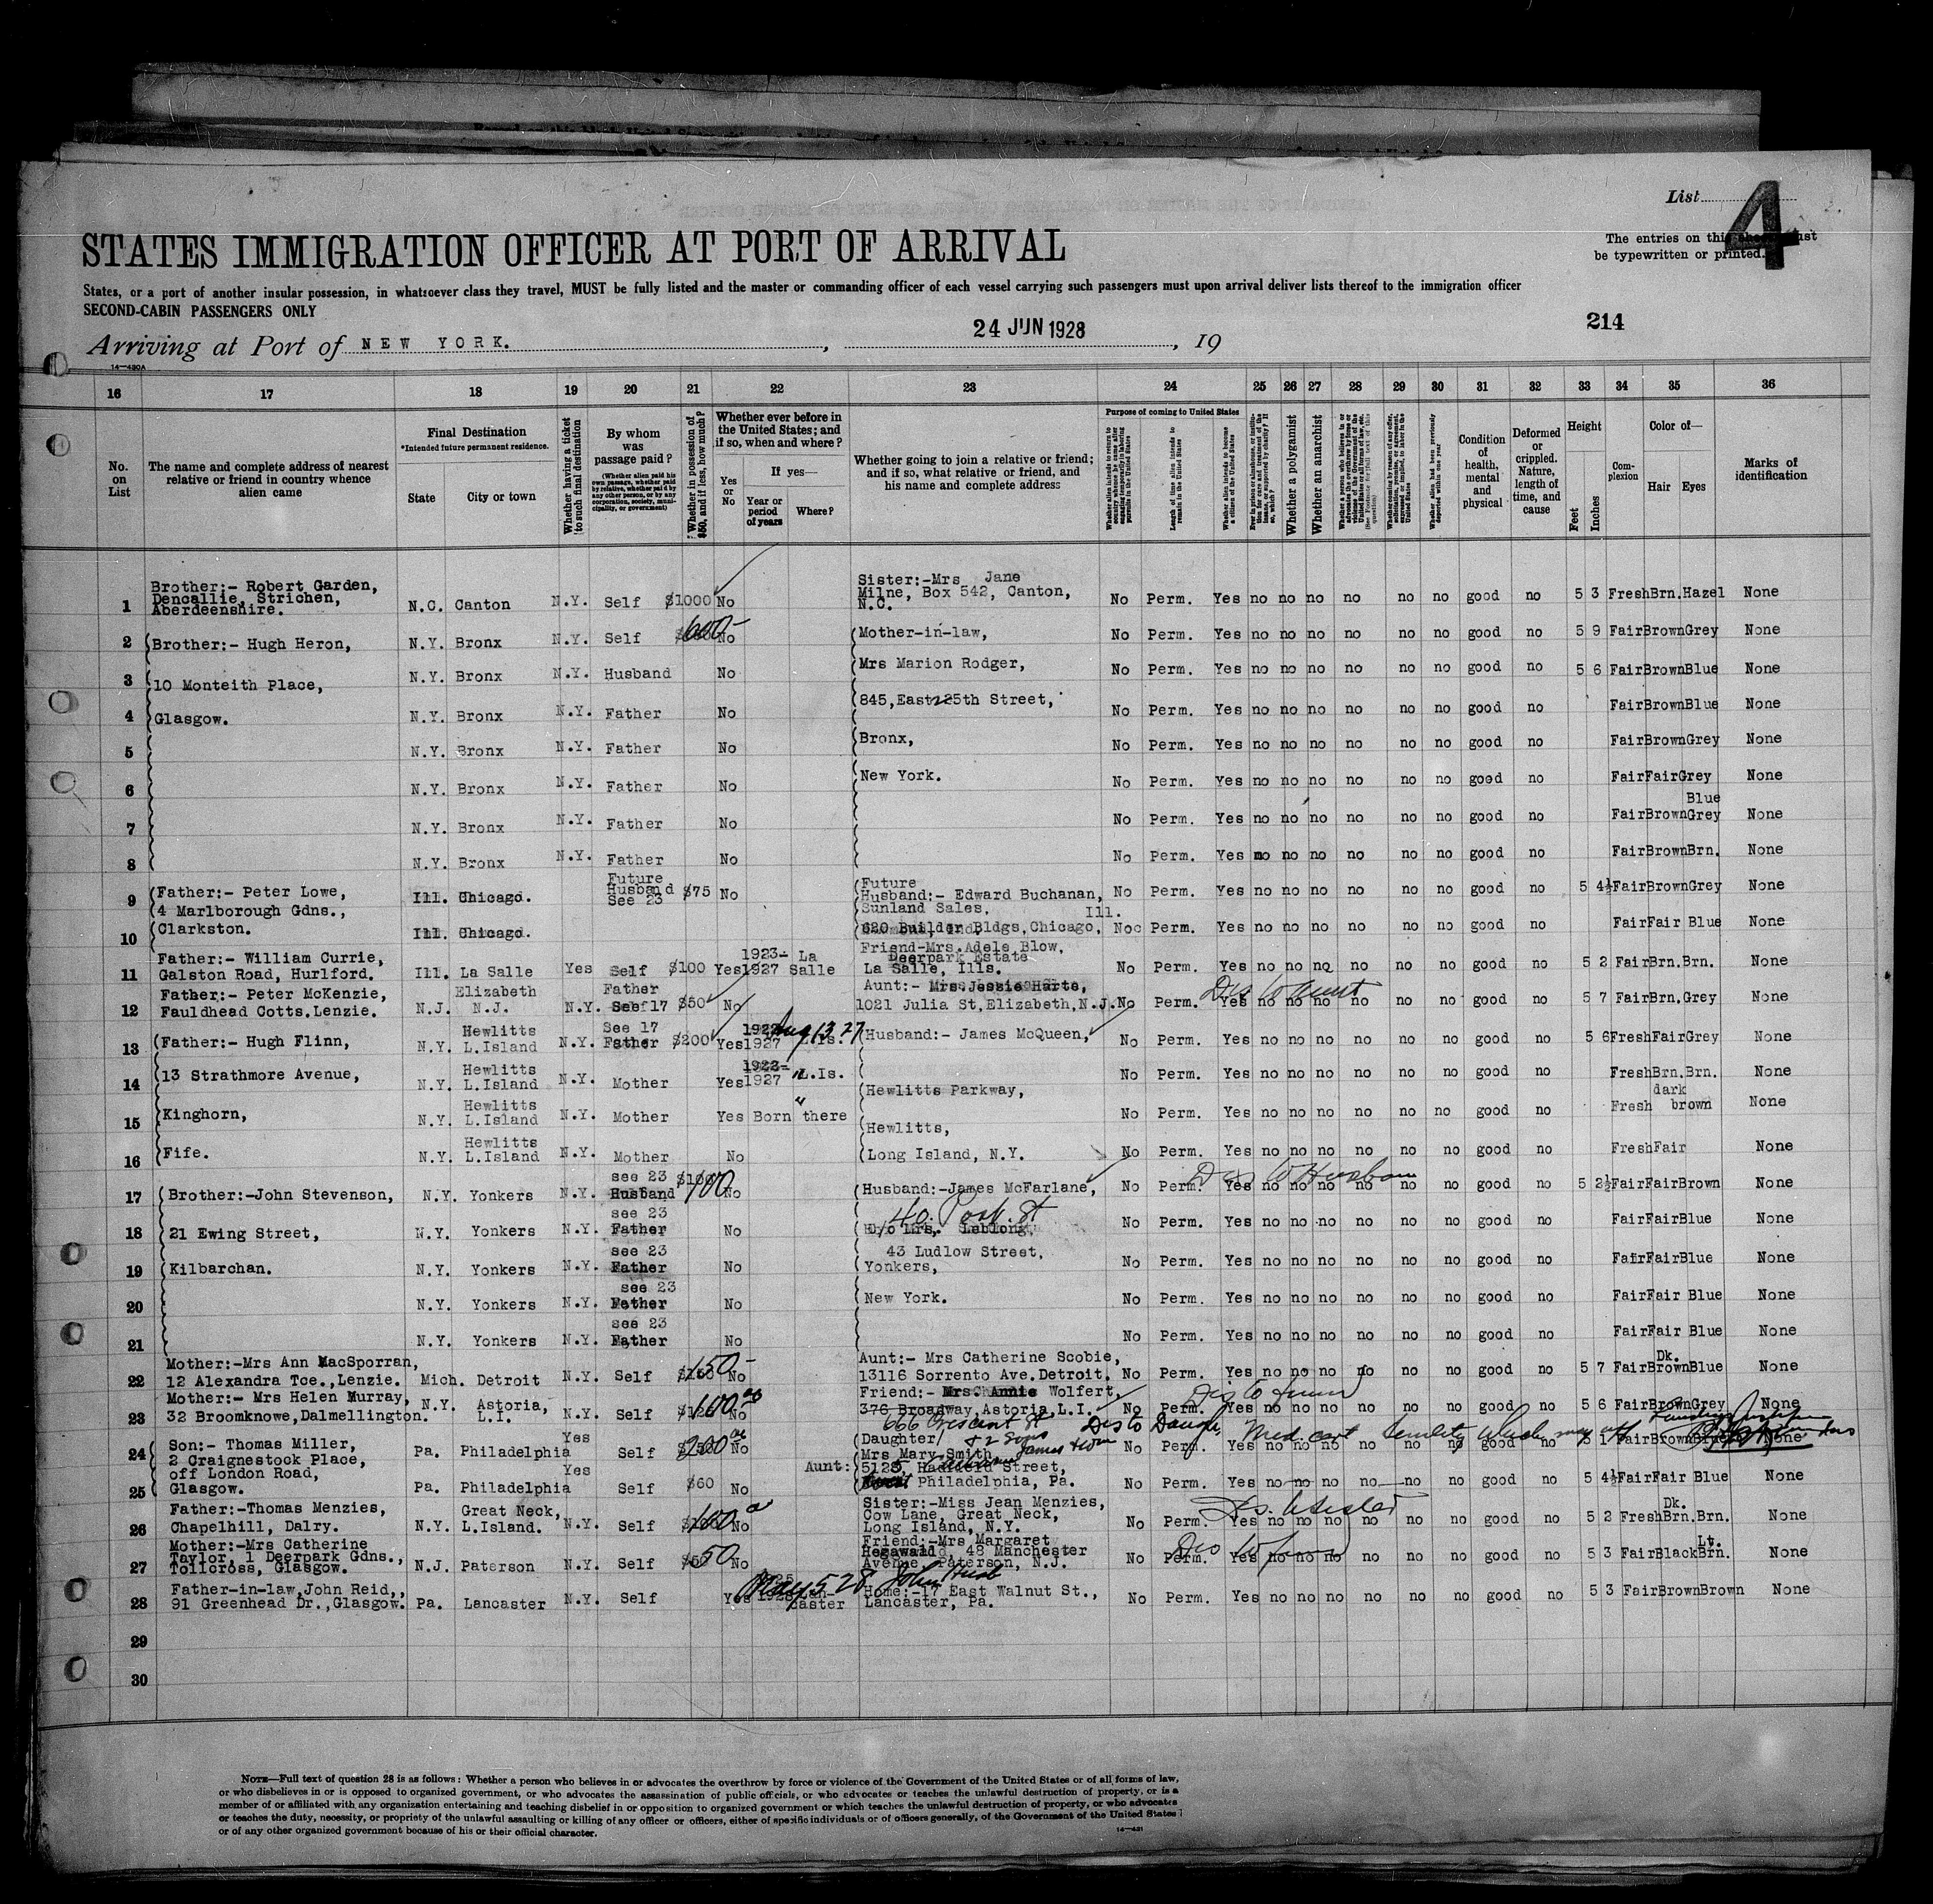 List 4
STATES IMMIGRATION OFFICER AT PORT OF ARRIVAL
The entries on this sheet must
be typewritten or printed.
States, or a port of another insular possession, in whatsoever class they travel, MUST be fully listed and the master or commanding officer of each vessel carrying such passengers must upon arrival deliver lists thereof to the immigration officer
SECOND-CABIN PASSENGERS ONLY
214
Arriving at Port of NEW YORK. , 24 JUN 1928 , 19
14-430A
16 17 18 19 20 21 22 23 24 25 26 27 28 29 30 31 32 33 34 35 36
No. on List
The name and complete address of nearest relative or friend in country whence alien came
Final Destination
*Intended future permanent residence.
State City or town
Whether having a ticket to such final destination
By whom was passage paid?
(Whether alien paid his own passage, whether paid by relative, whether paid by any other person, or by any corporation, society, municipality, or government)
Whether in possession of $50, and if less, how much?
Whether ever before in the United States; and if so, when and where?
Yes or No
If yes—
Year or period of years
Where?
Whether going to join a relative or friend; and if so, what relative or friend, and his name and complete address
Purpose of coming to United States
Length of time alien intends to remain in the United States
Whether alien intends to become a citizen of the United States
Whether a polygamist
Whether an anarchist
Condition of health, mental and physical
Deformed or crippled. Nature, length of time, and cause
Height
Feet Inches
Complexion
Color of—
Hair Eyes
Marks of identification
1 Brother:- Robert Garden, Dencallie, Strichen, Aberdeenshire. N.C. Canton N.Y. Self $1000 No Sister:-Mrs Jane Milne, Box 542, Canton, N.C. No Perm. Yes no no no no no no good no 5 3 Fresh Brn. Hazel None
2 Brother:- Hugh Heron, N.Y. Bronx N.Y. Self 600- No Mother-in-law, No Perm. Yes no no no no no no good no 5 9 Fair Brown Grey None
3 10 Monteith Place, N.Y. Bronx N.Y. Husband No Mrs Marion Rodger, No Perm. Yes no no no no no no good no 5 6 Fair Brown Blue None
4 Glasgow. N.Y. Bronx N.Y. Father No 845, East 225th Street, No Perm. Yes no no no no no no good no Fair Brown Blue None
5 N.Y. Bronx N.Y. Father No Bronx, No Perm. Yes no no no no no no good no Fair Brown Grey None
6 N.Y. Bronx N.Y. Father No New York. No Perm. Yes no no no no no no good no Fair Fair Grey None
7 N.Y. Bronx N.Y. Father No No Perm. Yes no no no no no no good no Fair Brown Blue Grey None
8 N.Y. Bronx N.Y. Father No No Perm. Yes no no no no no no good no Fair Brown Brn. None
9 Father:- Peter Lowe, Ill. Chicago. Future Husband See 23 $75 No Future Husband:- Edward Buchanan, No Perm. Yes no no no no no no good no 5 4½ Fair Brown Grey None
4 Marlborough Gdns., Sunland Sales, Ill.
10 Clarkston. Ill. Chicago. 620 Builder Bldgs, Chicago, No Perm. Yes no no no no no no good no Fair Fair Blue None
11 Father:- William Currie, Galston Road, Hurlford. Ill. La Salle Yes Self $100 Yes 1923-1927 La Salle Friend-Mrs. Adele Blow, Deerpark Estate La Salle, Ills. No Perm. Yes no no no no no no good no 5 2 Fair Brn. Brn. None
12 Father:- Peter McKenzie, Fauldhead Cotts. Lenzie. N.J. Elizabeth N.J. N.Y. Father See 17 $50 No Aunt:- Mrs. Jessie Harte, 1021 Julia St, Elizabeth, N.J. No Perm. Yes no no no no no no good no 5 7 Fair Brn. Grey None
Dis to Aunt
13 Father:- Hugh Flinn, N.Y. Hewlitts L.Island N.Y. See 17 Father $200 Yes 1922 1927 Aug 13 27 Is. Husband:- James McQueen, No Perm. Yes no no no no no no good no 5 6 Fresh Fair Grey None
14 13 Strathmore Avenue, N.Y. Hewlitts L.Island N.Y. Mother Yes 1922-1927 L.Is. Hewlitts Parkway, No Perm. Yes no no no no no no good no Fresh Brn. Brn. None
15 Kinghorn, N.Y. Hewlitts L.Island N.Y. Mother Yes Born there Hewlitts, No Perm. Yes no no no no no no good no Fresh dark brown None
16 Fife. N.Y. Hewlitts L.Island N.Y. Mother No Long Island, N.Y. No Perm. Yes no no no no no no good no Fresh Fair None
17 Brother:-John Stevenson, N.Y. Yonkers N.Y. see 23 Husband $100 100 No Husband:-James McFarlane, No Perm. Yes no no no no no no good no 5 2½ Fair Fair Brown None
Dis to Husban
18 21 Ewing Street, N.Y. Yonkers N.Y. see 23 Father No 40 Park St C/o Mrs. No Perm. Yes no no no no no no good no Fair Fair Blue None
43 Ludlow Street,
19 Kilbarchan. N.Y. Yonkers N.Y. see 23 Father No Yonkers, No Perm. Yes no no no no no no good no Fair Fair Blue None
20 N.Y. Yonkers N.Y. see 23 Father No New York. No Perm. Yes no no no no no no good no Fair Fair Blue None
21 N.Y. Yonkers N.Y. see 23 Father No No Perm. Yes no no no no no no good no Fair Fair Blue None
22 Mother:-Mrs Ann MacSporran, 12 Alexandra Tce., Lenzie. Mich. Detroit N.Y. Self 150- No Aunt:- Mrs Catherine Scobie, 13116 Sorrento Ave. Detroit. No Perm. Yes no no no no no no good no 5 7 Fair Dk. Brown Blue None
23 Mother:- Mrs Helen Murray, 32 Broomknowe, Dalmellington. N.Y. Astoria, L.I. N.Y. Self 100 No Friend:- Mrs. Annie Wolfert, 376 Broadway, Astoria, L.I. No Perm. Yes no no no no no no good no 5 6 Fair Brown Grey None
666 Crescent St Dis to Daugh Med. cert Senility
24 Son:- Thomas Miller, 2 Craignestock Place, Pa. Philadelphia Yes Self 200 No Daughter & 2 Sons Mrs Mary Smith No Perm. Yes no no no no no no good no 5 1 Fair Brown None
25 off London Road, Glasgow. Pa. Philadelphia Yes Self $60 No Aunt: Street, Philadelphia, Pa. No Perm. Yes no no no no no no good no 5 4½ Fair Fair Blue None
26 Father:-Thomas Menzies, Chapelhill, Dalry. N.Y. Great Neck, L.Island. N.Y. Self 100 No Sister:-Miss Jean Menzies, Cow Lane, Great Neck, Long Island, N.Y. No Perm. Yes no no no no no no good no 5 2 Fresh Dk. Brn. Brn. None
27 Mother:-Mrs Catherine Taylor, 1 Deerpark Gdns., Tollcross, Glasgow. N.J. Paterson N.Y. Self 50 No Friend:-Mrs Margaret 48 Manchester Avenue, Paterson, N.J. No Perm. Yes no no no no no no good no 5 3 Fair Black Lt. Brn. None
28 Father-in-law, John Reid,, 91 Greenhead Dr., Glasgow. Pa. Lancaster N.Y. Self Yes May 5 28 Lancaster John Husb Home:-17 East Walnut St., Lancaster, Pa. No Perm. Yes no no no no no no good no 5 3 Fair Brown Brown None
29
30
NOTE—Full text of question 28 is as follows: Whether a person who believes in or advocates the overthrow by force or violence of the Government of the United States or of all forms of law,
or who disbelieves in or is opposed to organized government, or who advocates the assassination of public officials, or who advocates or teaches the unlawful destruction of property, or is a
member of or affiliated with any organization entertaining and teaching disbelief in or opposition to organized government or which teaches the unlawful destruction of property, or who advocates
or teaches the duty, necessity, or propriety of the unlawful assaulting or killing of any officer or officers, either of specific individuals or of officers generally, of the Government of the United States
or of any other organized government because of his or their official character.
14-431